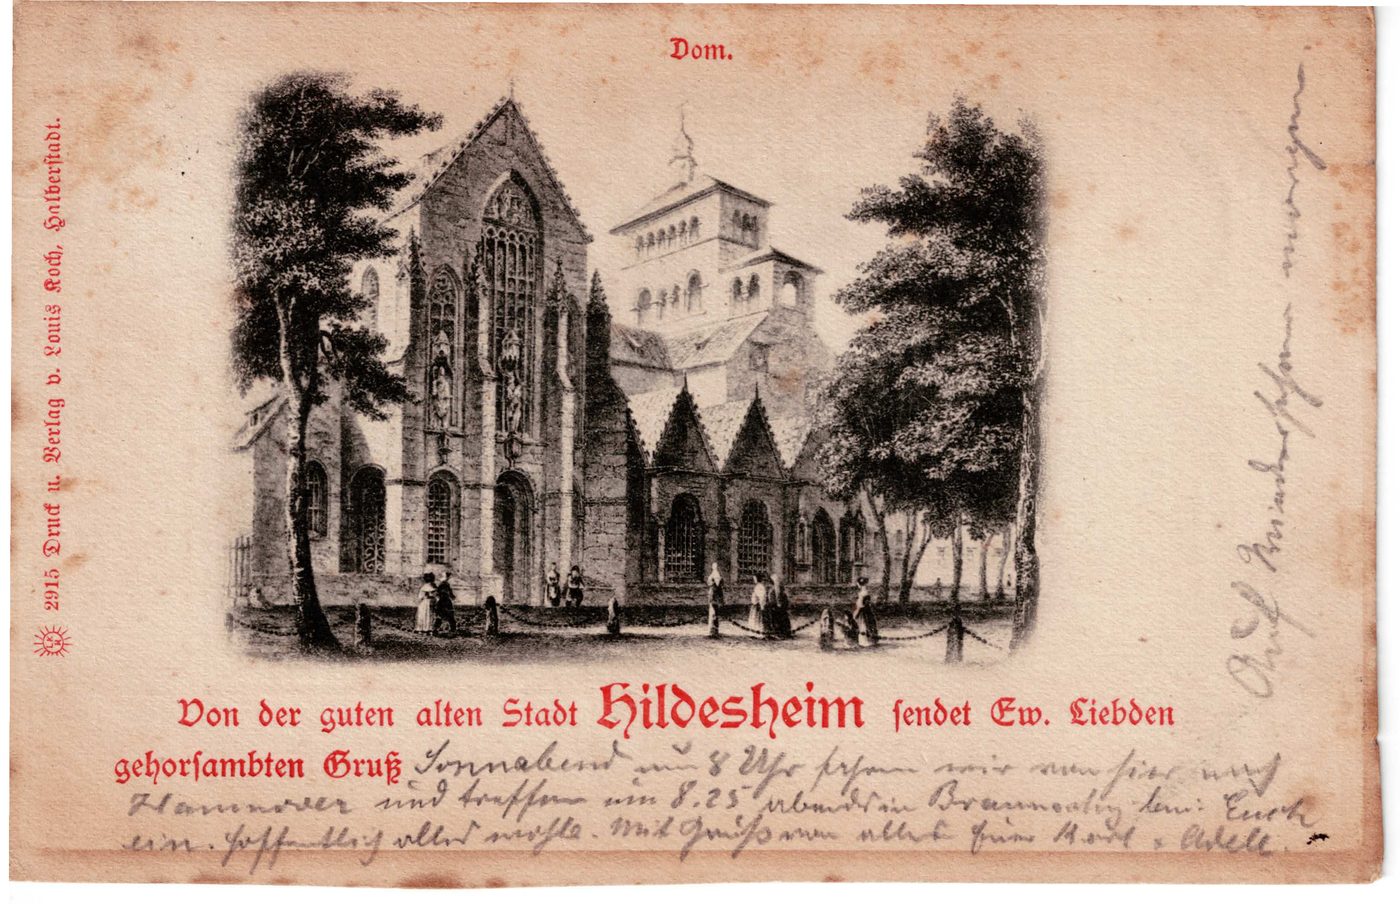 Dom.
2915 Druck u. Verlag v. Louis Koch, Halberstadt.
Von der guten alten Stadt Hildesheim sendet Ew. Liebden
gehorsambten Gruß Sonnabend um 8 Uhr fahren wir von hier nach
Hannover und treffen um 8.25 abends in Braunschweig bei Euch
ein. Hoffentlich alles wohl. Mit Gruß von alles Euer Karl u. Adele.
Auf Wiedersehen morgen